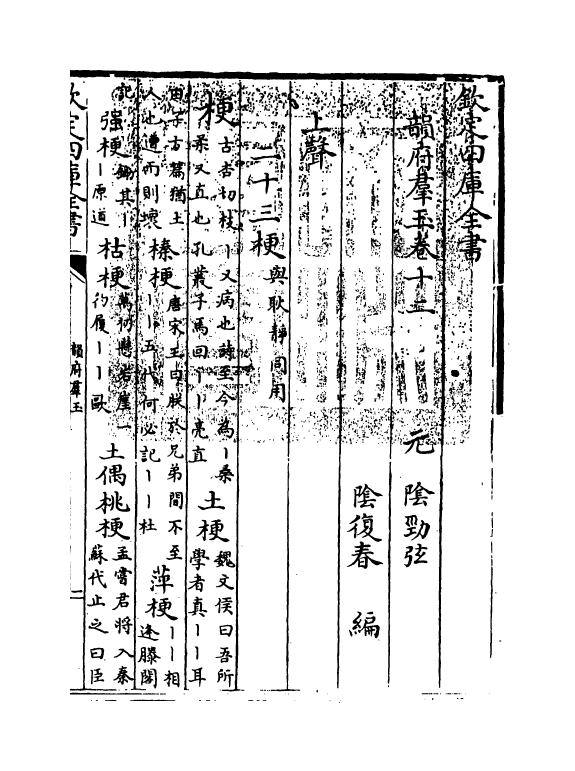 欽定四庫全書
韻府羣玉卷十二
元 陰勁弦
陰復春 編
上聲
二十三梗與耿靜同用
梗古杏切枝丨又病也詩至今為丨桑
柔又直也孔叢子馬回丨丨亮直土梗魏文侯曰吾所
學者真丨丨耳
田子古篇猶土
人也遭雨則壞榛梗唐宋王曰朕於兄弟間不至
丨丨五代何必記丨丨杜萍梗丨丨相
逢滕閣
記强梗鋤其丨
丨原道枯梗萬仞懸岩崖一
彴履丨丨歐土偶桃梗孟嘗君將入秦
蘇代止之曰臣
欽定四庫全書
韻府羣玉
二